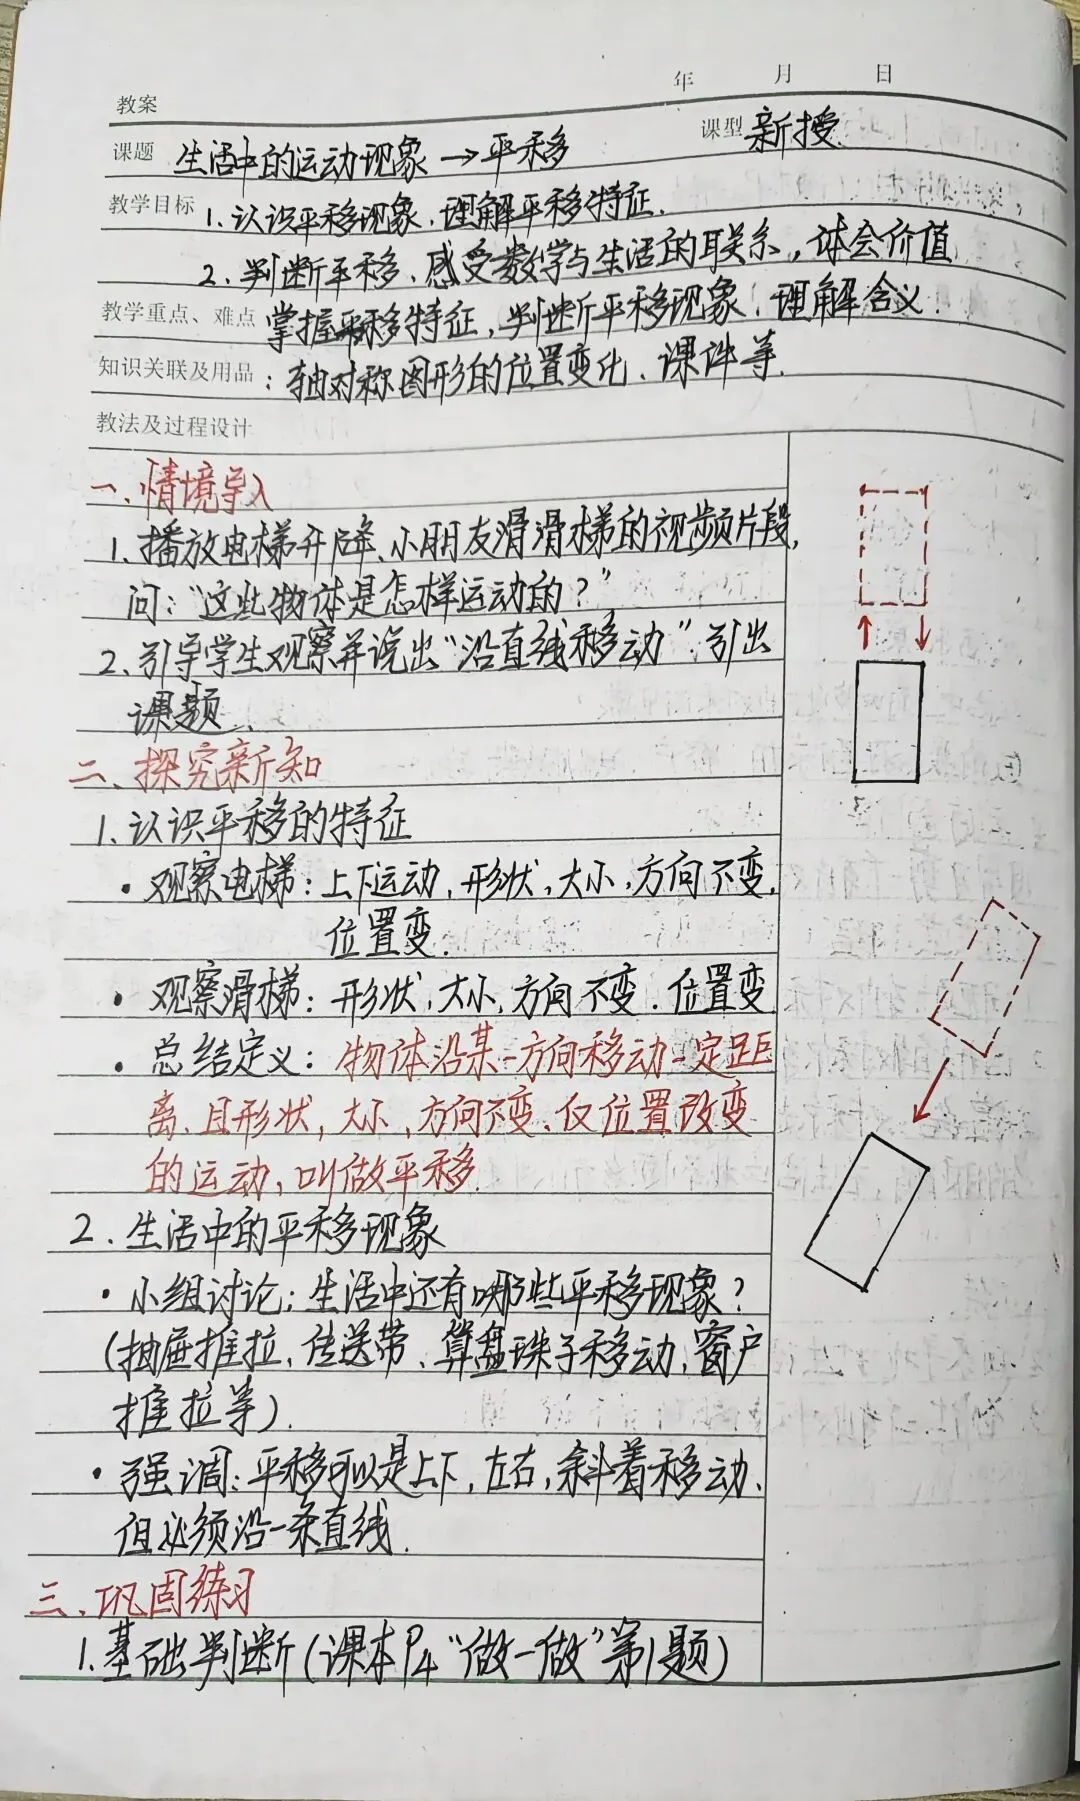 年 月 日
教案
课题 生活中的运动现象→平移 课型 新授
教学目标 1.认识平移现象、理解平移特征.
2.判断平移、感受数学与生活的联系，体会价值
教学重点、难点 掌握平移特征，判断平移现象、理解含义.
知识关联及用品：轴对称图形的位置变化、课件等.
教法及过程设计
一、情境导入
1.播放电梯升降、小朋友滑滑梯的视频片段,
问：“这些物体是怎样运动的？”
2.引导学生观察并说出“沿直线移动”，引出
课题.
二、探究新知
1.认识平移的特征
·观察电梯：上下运动，形状，大小，方向不变，
位置变.
·观察滑梯：形状，大小，方向不变．位置变.
·总结定义：物体沿某一方向移动一定距
离、且形状，大小，方向不变、仅位置改变
的运动、叫做平移.
2.生活中的平移现象
·小组讨论：生活中还有哪些平移现象？
（抽屉推拉、传送带、算盘珠子移动、窗户
推拉等）.
·强调：平移可以是上下，左右，斜着移动、
但必须沿一条直线.
三、巩固练习
1.基础判断（课本P4“做一做”第1题）